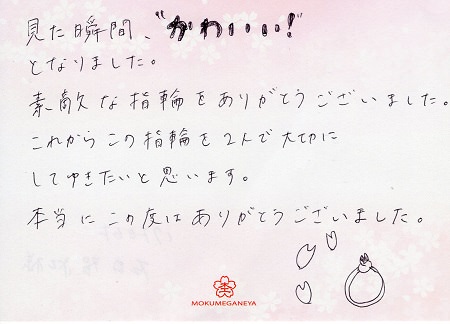 見た瞬間、“かわいいい!”
となりました。
素敵な指輪をありがとうございました。
これからこの指輪を2人で大切に
してゆきたいと思います。
本当にこの度はありがとうございました。
MOKUMEGANEYA